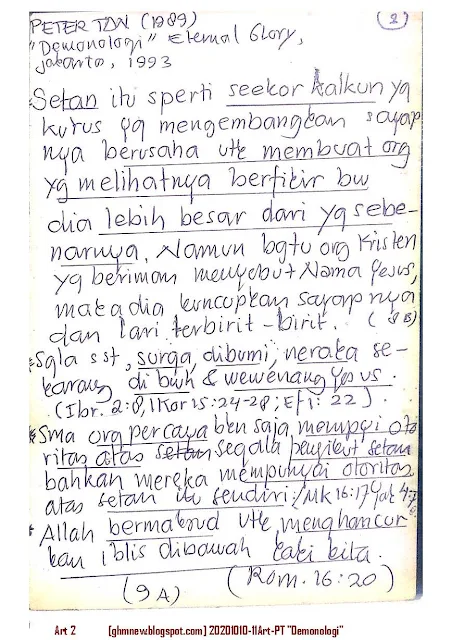 PETER TAN (1989) (2)
"Demonologi" Eternal Glory,
Jakarta, 1993
Setan itu sperti seekor kalkun yg
kurus yg mengembangkan sayap
nya berusaha utk membuat org
yg melihatnya berfikir bw
dia lebih besar dari yg sebe-
narnya. Namun bgtu org Kristen
yg beriman menyebut Nama Yesus,
maka dia kuncupkan sayap nya
dan lari terbirit-birit. (8B)
* Sgla sst, surga, dibumi, neraka se-
karang di bwh & wewenang Yesus.
(Ibr. 2:8, 1 Kor 15:24-28; Ef 1:22)
* Sma org percaya bkn saja mempyi oto
ritas atas setan segala pengikut setan
bahkan mereka mempunyai otoritas
atas setan itu sendiri/Mk 16:17 Yak 4:7
* Allah bermaksud utk menghancur
kan iblis dibawah kaki kita.
(9A) (Rom. 16:20)
Art 2 [ghmnew.blogspot.com] 20201010-11Art-PT "Demonologi"